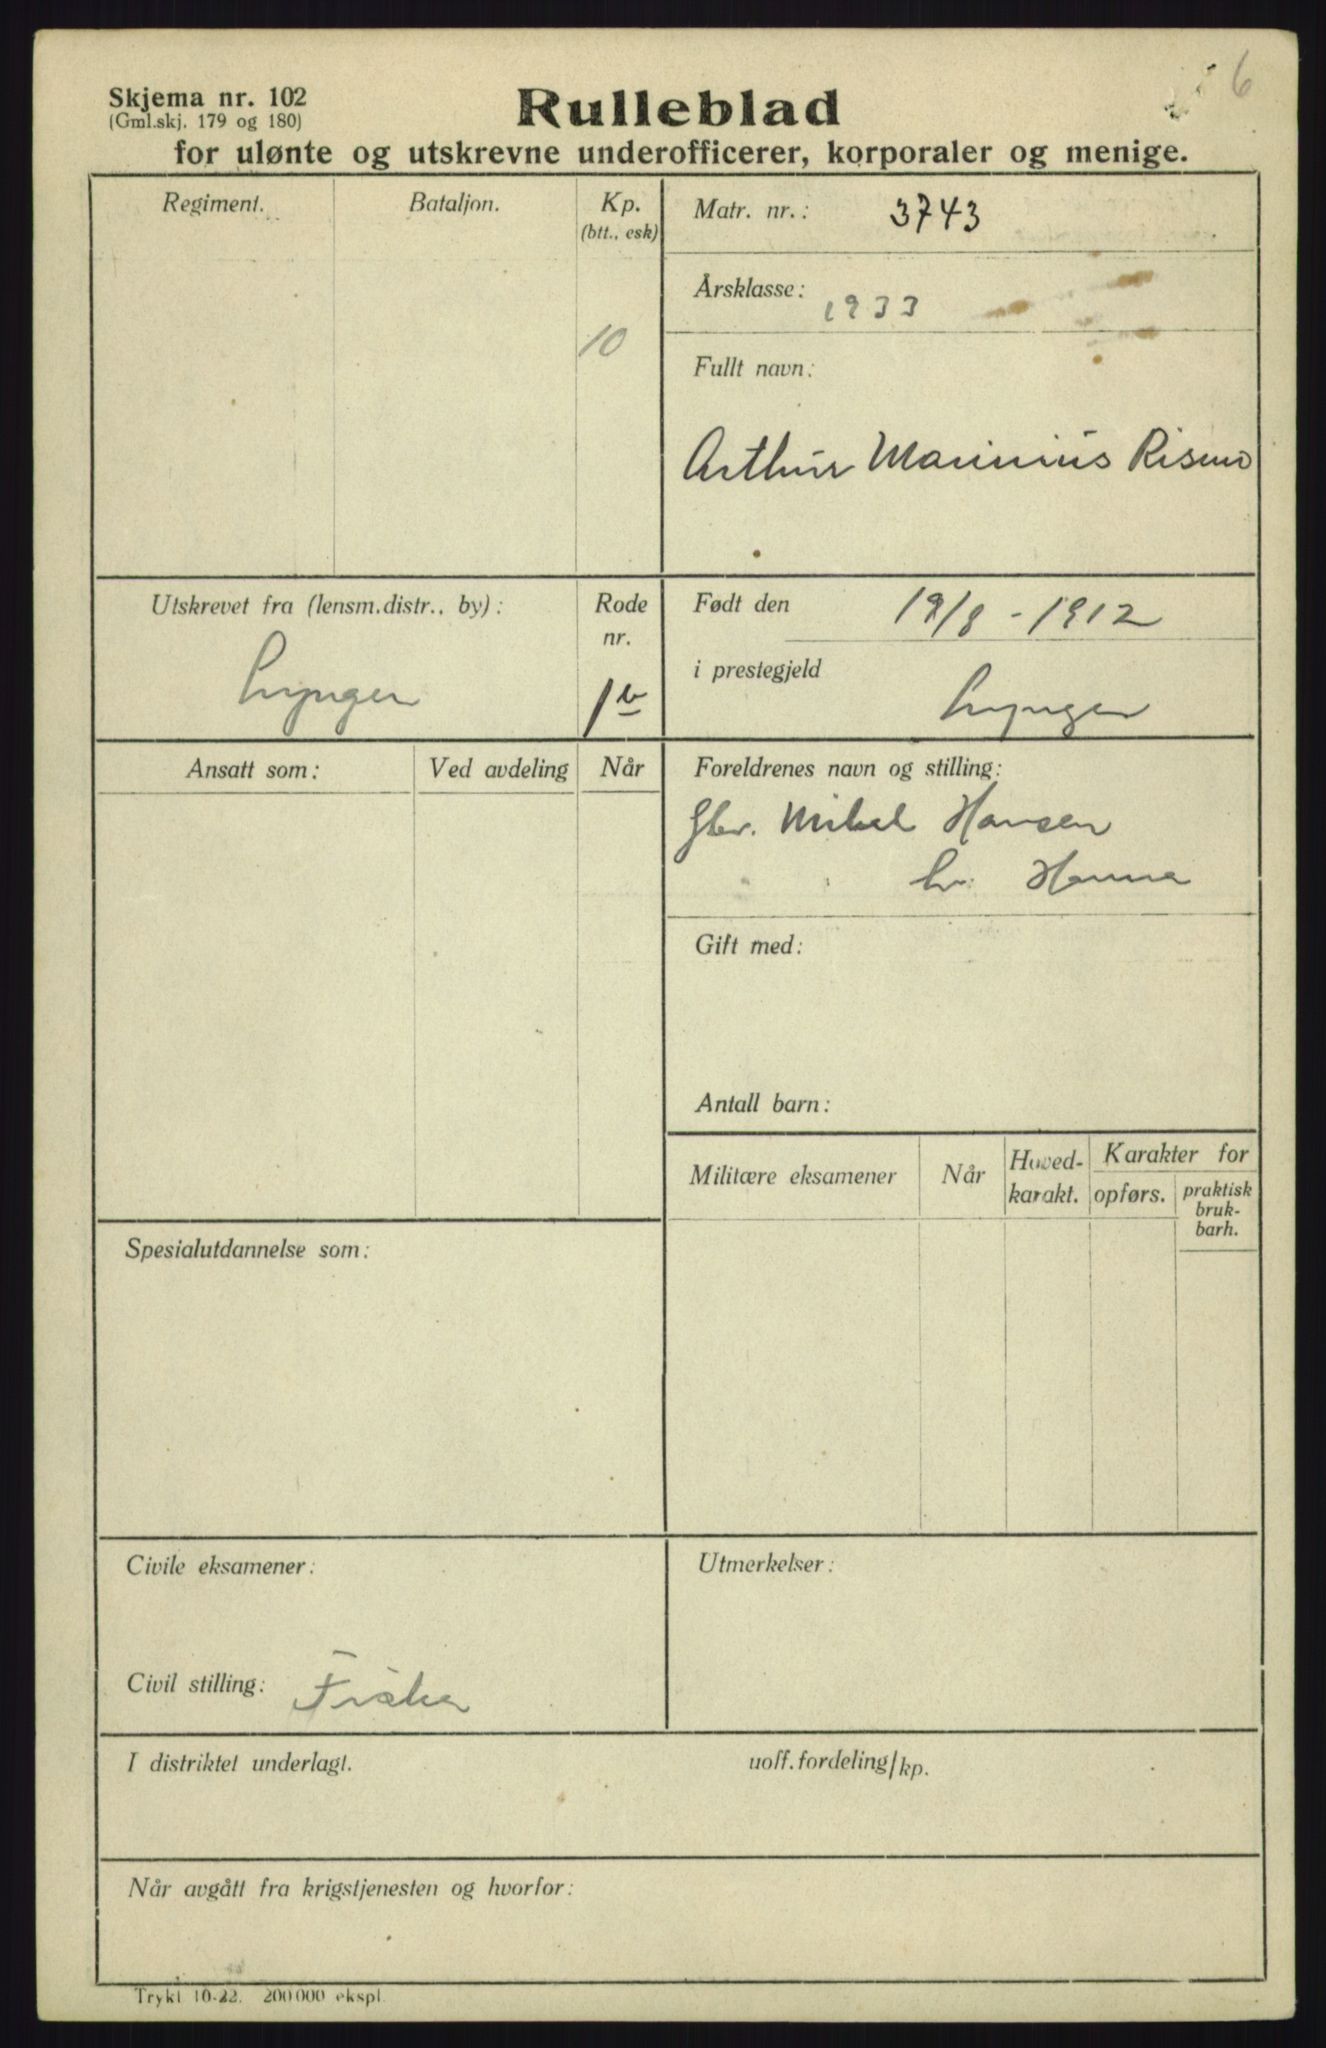 6
Skjema nr. 102
(Gml.skj. 179 og 180)
Rulleblad
for ulønte og utskrevne underofficerer, korporaler og menige.
Regiment.
Bataljon.
Kp.
(btt., esk)
10
Matr. nr.: 3743
Årsklasse: 1933
Fullt navn:
Arthur Marinius Rismo
Utskrevet fra (lensm.distr., by):
Lyngen
Rode
nr.
1 b
Født den 19/8 - 1912
i prestegjeld
Lyngen
Ansatt som:
Ved avdeling
Når
Foreldrenes navn og stilling:
Gbr. Mikal Hansen
Hanna
Gift med:
Antall barn:
Militære eksamener
Når
Hoved-
karakt.
Karakter for
opførs.
praktisk
bruk-
barh.
Spesialutdannelse som:
Civile eksamener:
Utmerkelser:
Civil stilling: Fisker
I distriktet underlagt.
uoff.fordeling/kp.
Når avgått fra krigstjenesten og hvorfor:
Trykt 10-22. 200000 ekspl.